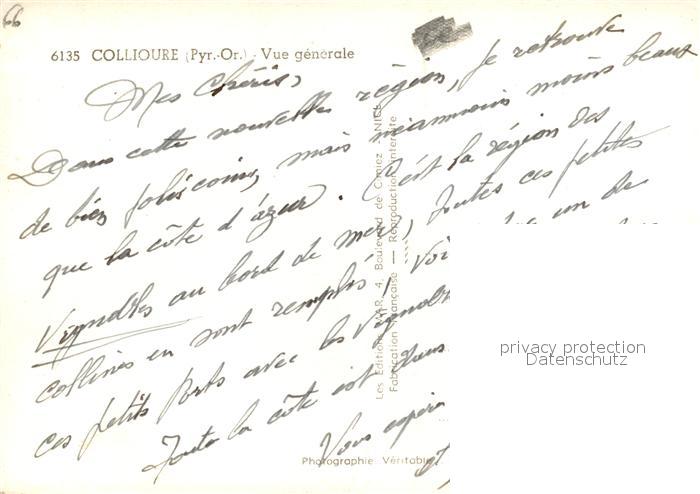 66
6135 COLLIOURE (Pyr.-Or.) - Vue générale
Mes Chéris,
Dans cette nouvelle région, je retrouve
de bien jolis coins, mais néanmoins moins beaux
que la côte d'azur. C'est la région des
Vignobles au bord de mer, toutes ces petites
collines en sont remplis, Voi un de
ces petits ports avec les Vignobl
Toute la côte est dans
Vous espér
et
Les Editions MAR, 4, Boulevard de Cimiez - NICE
Fabrication Française — Reproduction interdite
Photographie Véritable
privacy protection
Datenschutz